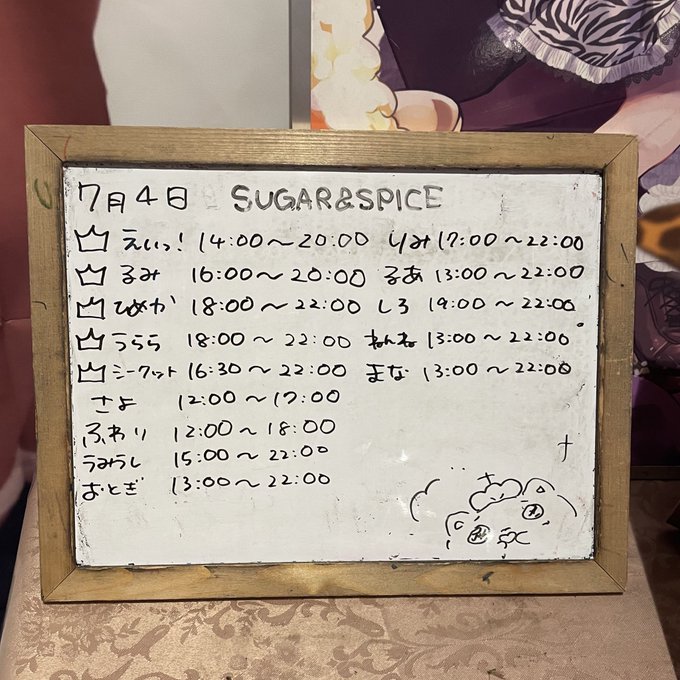 7月4日 SUGAR&SPICE
えいっ! 14:00〜20:00 りみ 17:00〜22:00
るみ 16:00〜20:00 るあ 13:00〜22:00
ひめか 18:00〜22:00 しろ 19:00〜22:00
うらら 18:00〜22:00 ねんね 13:00〜22:00
シークット 16:30〜22:00 まな 13:00〜22:00
さよ 12:00〜17:00
ふわり 12:00〜18:00
うみうし 15:00〜22:00
おとぎ 13:00〜22:00